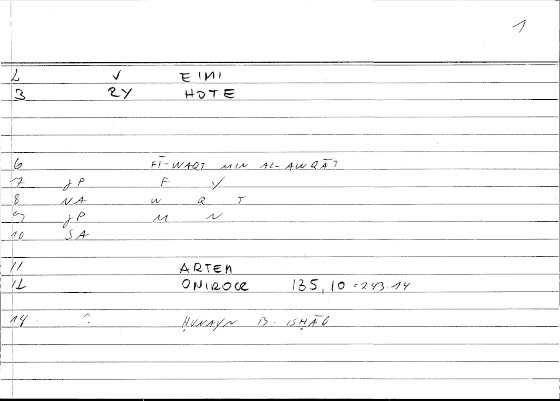 1
2 √ EIMI
3 2Y HOTE
6 FĪ-WAQT MIN AL-AWQĀT
7 JP F Y
8 NA W Q T
9 JP M N
10 SA
11 ARTEM
12 ONIROCR 135,10 = 243.14
14 ? ḤUNAYN B. ISḤĀQ